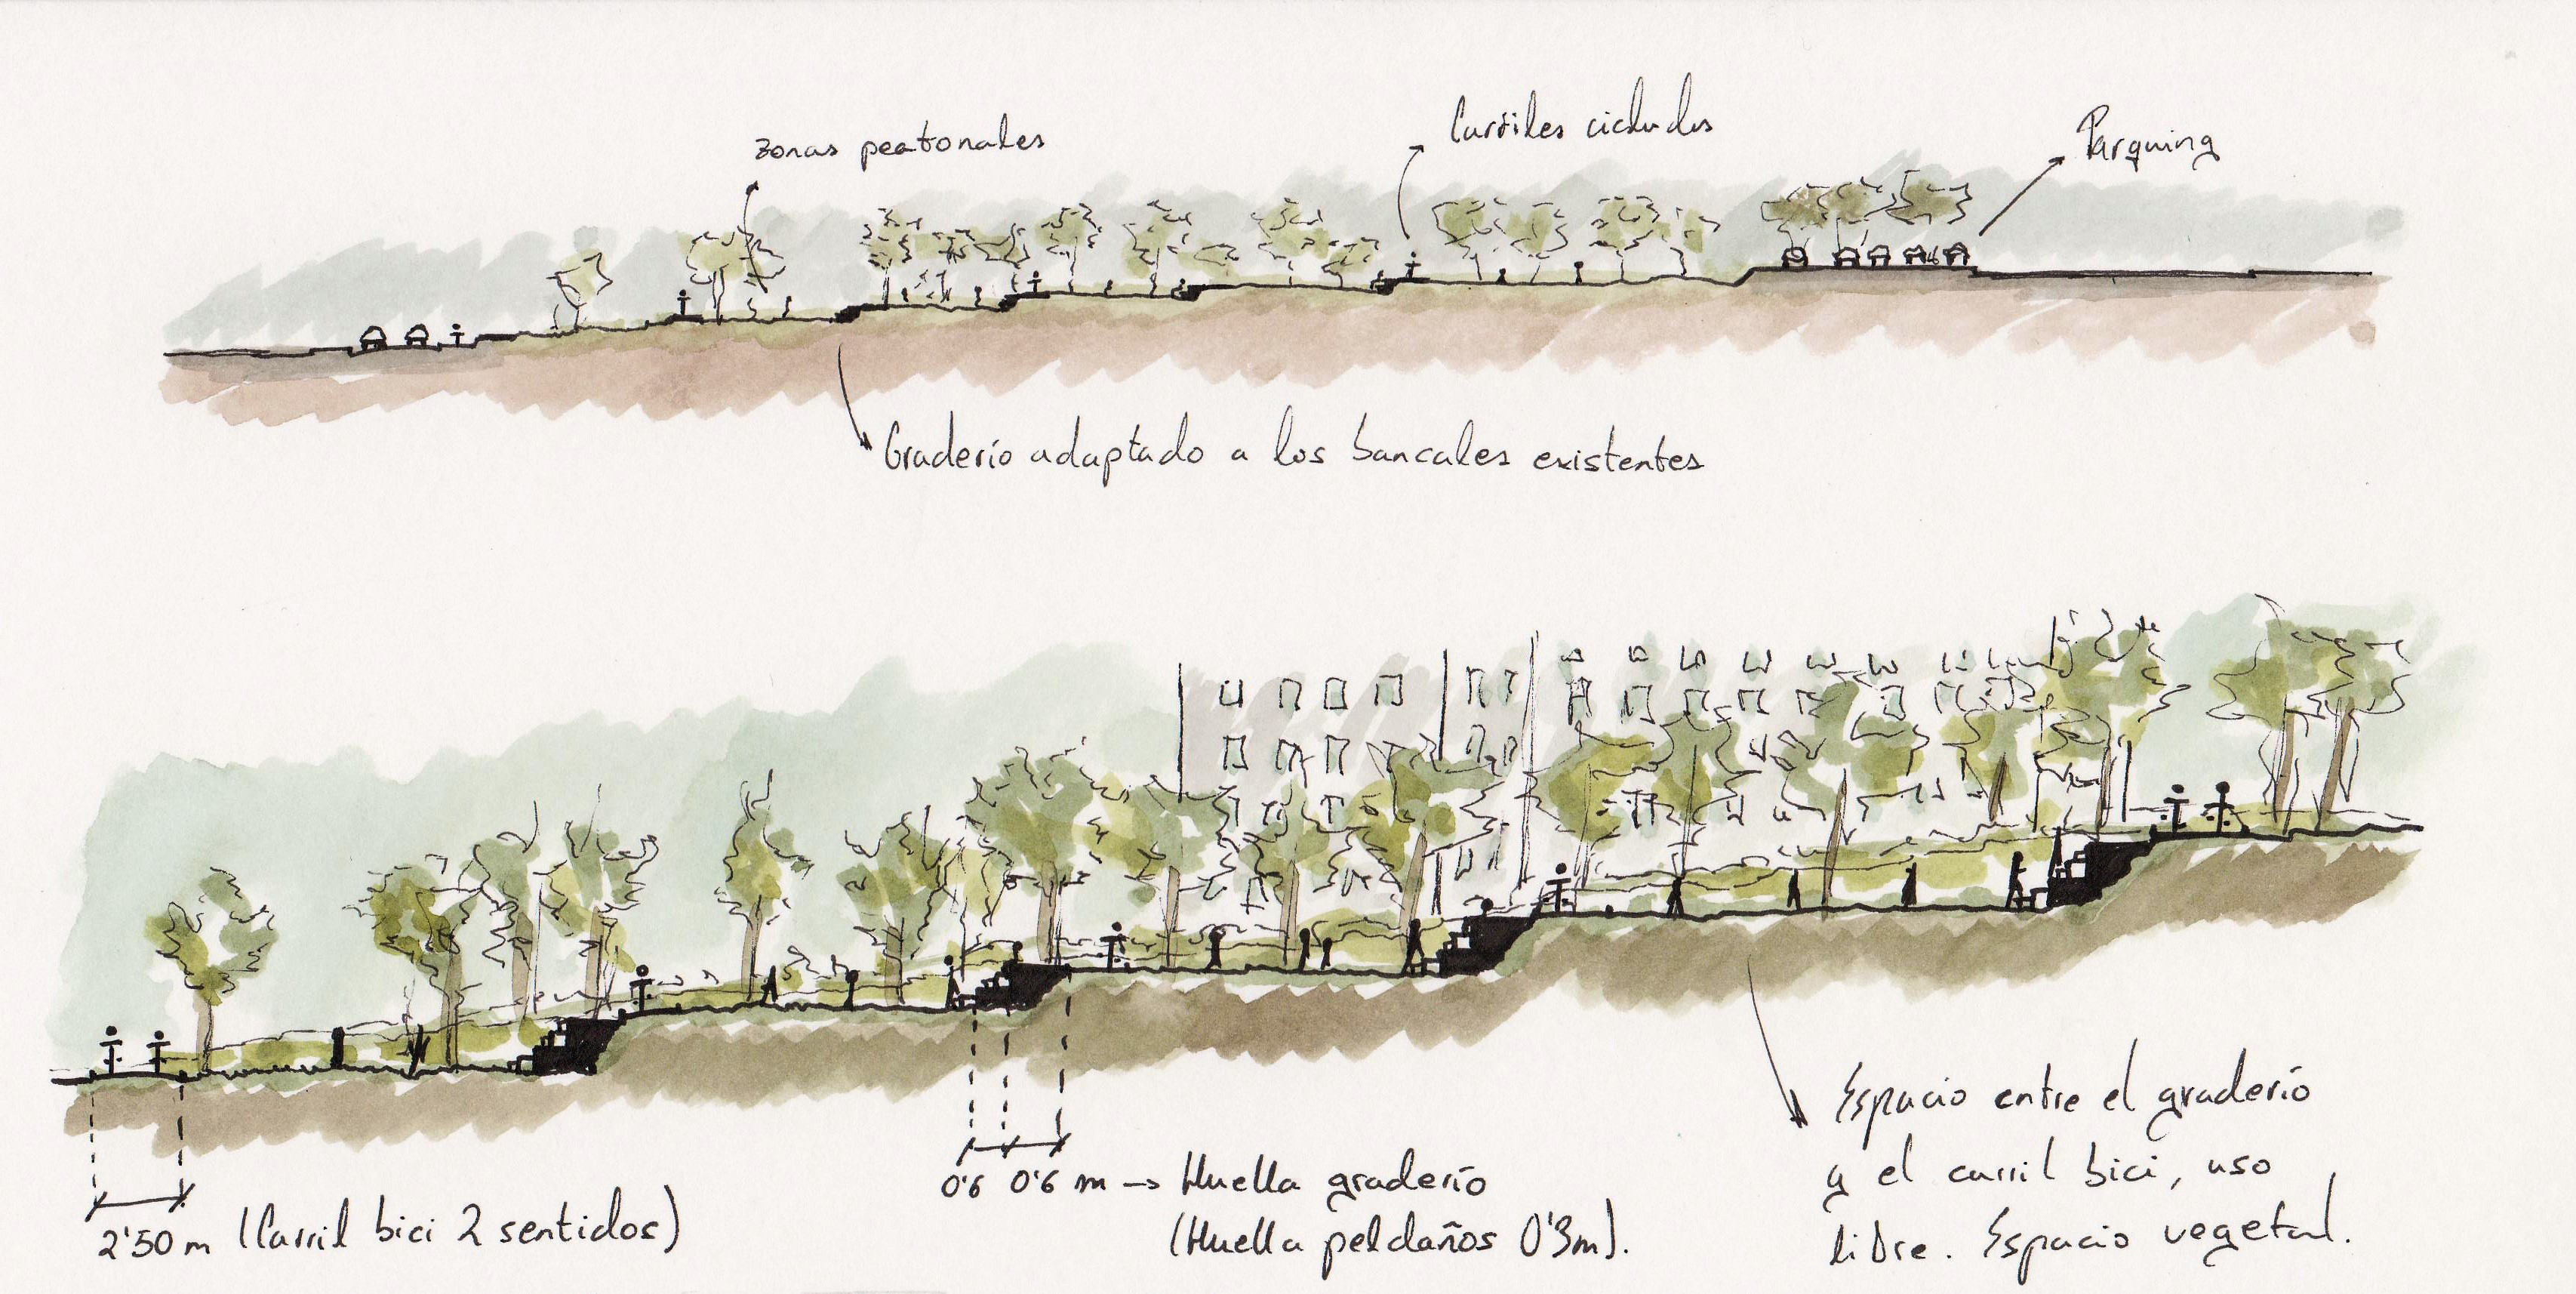 zonas peatonales
Carriles ciclados
Parquing
Graderío adaptado a los bancales existentes
2'50 m (Carril bici 2 sentidos)
0'6 0'6 m → Huella graderío
(Huella peldaños 0'3m).
Espacio entre el graderío
y el carril bici, uso
libre. Espacio vegetal.